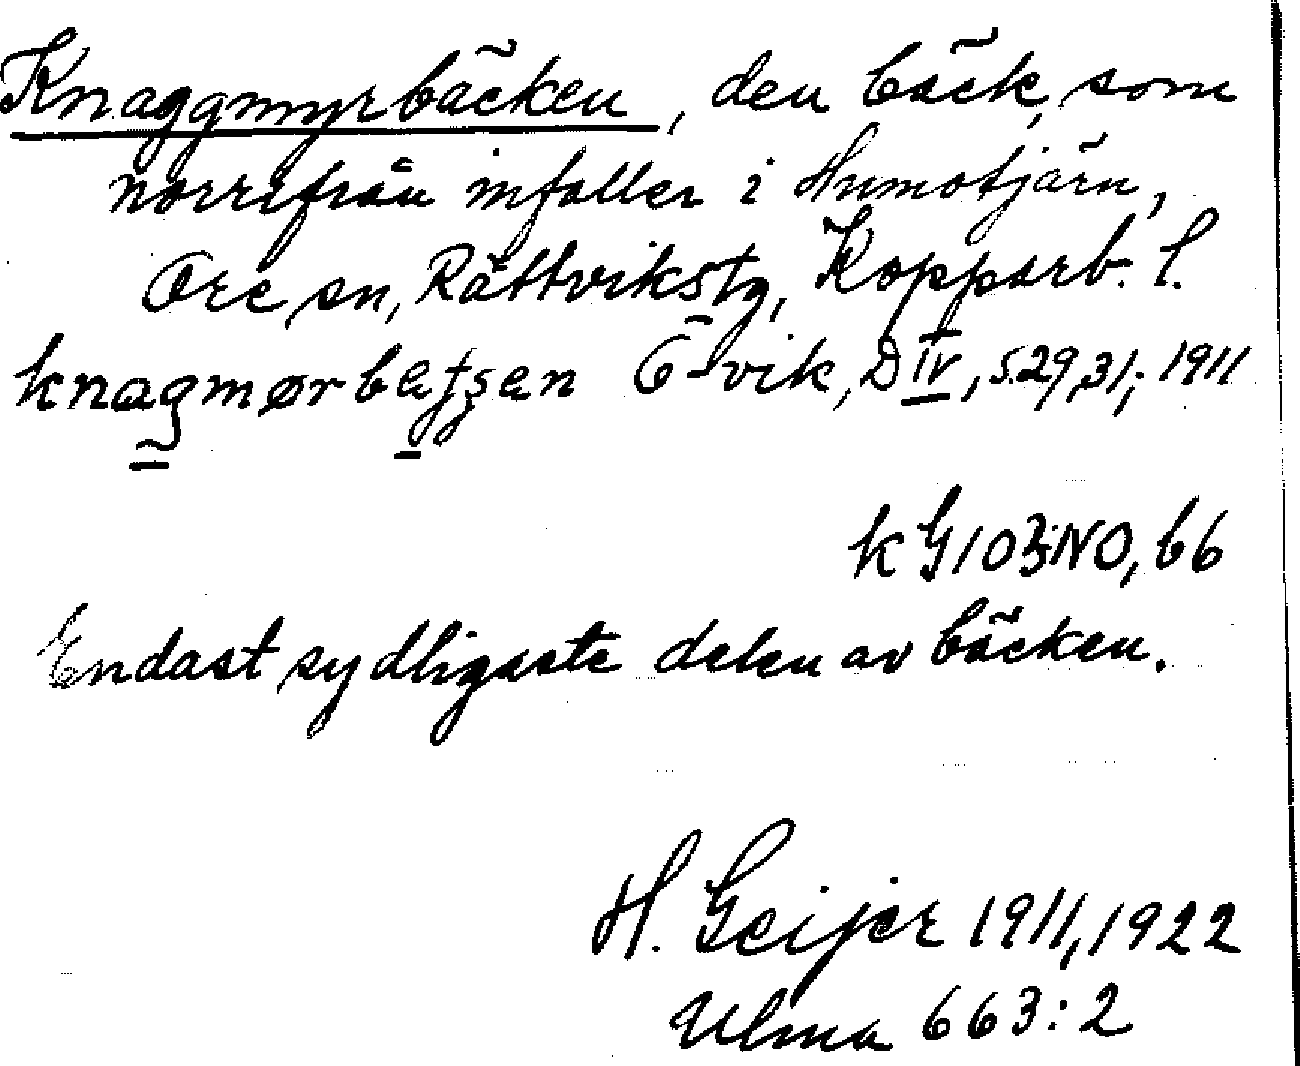 Knaggmyrbäcken, den bäck, som
norrifrån infaller i Humotjärn,
Ore sn, Rättvikstg, Kopparb. l.
knagmørb
vik, D IV, s. 29, 31; 1911
k G 103 NO, b6
Endast sydligaste delen av bäcken.
H. Geijer 1911, 1922
Ulma 663:2